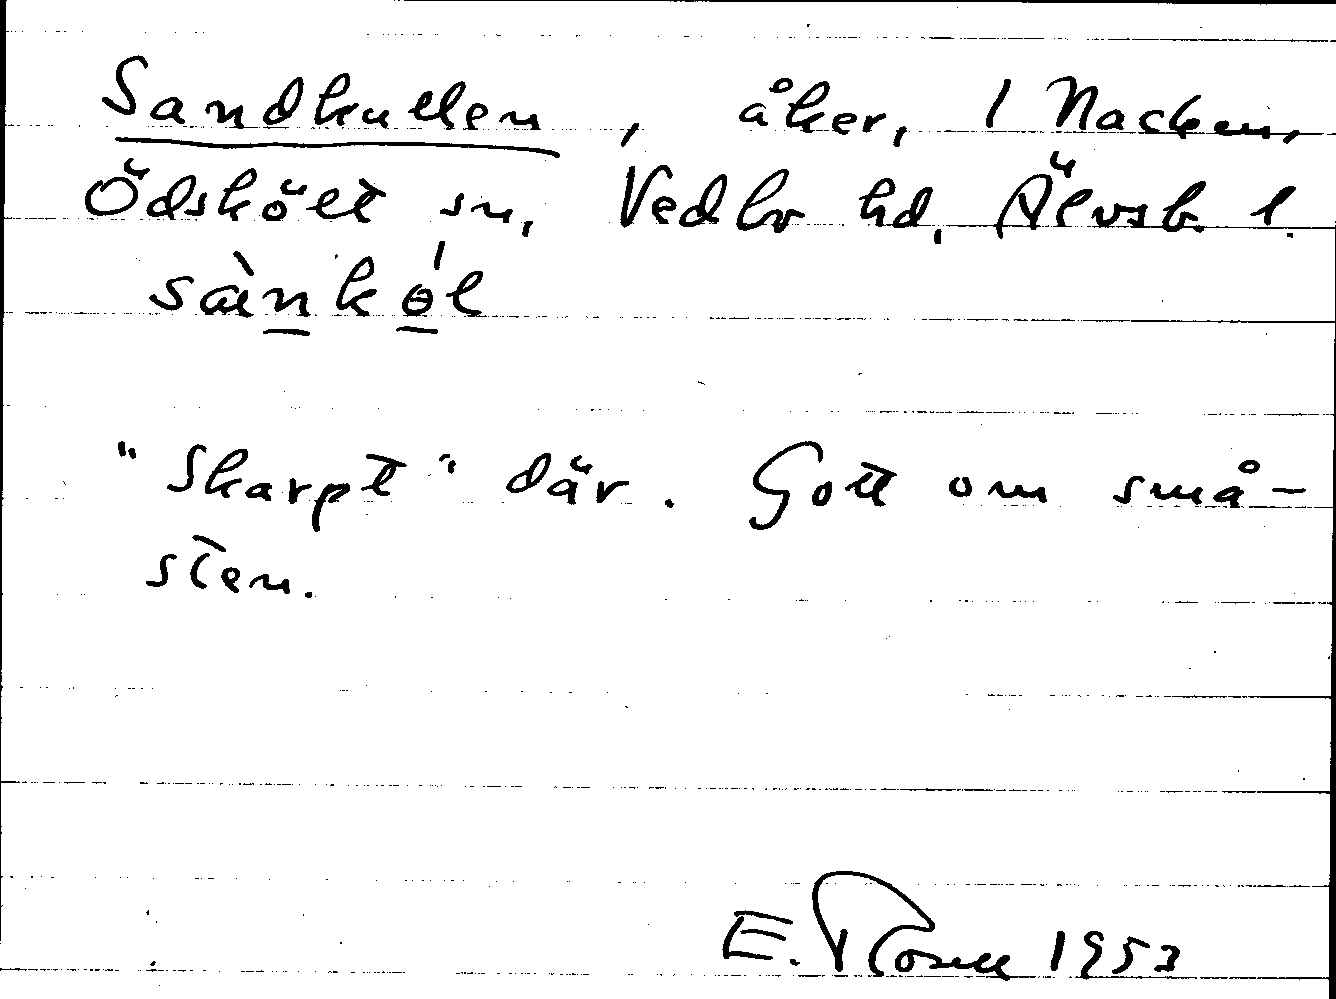 Sandkullen, åker, 1 Nacken,
Ödskölt sn, Vedbo hd, Älvsb. l.
sànkɵ́l
"Skarpt" där. Gott om små-
sten.
E. 1953